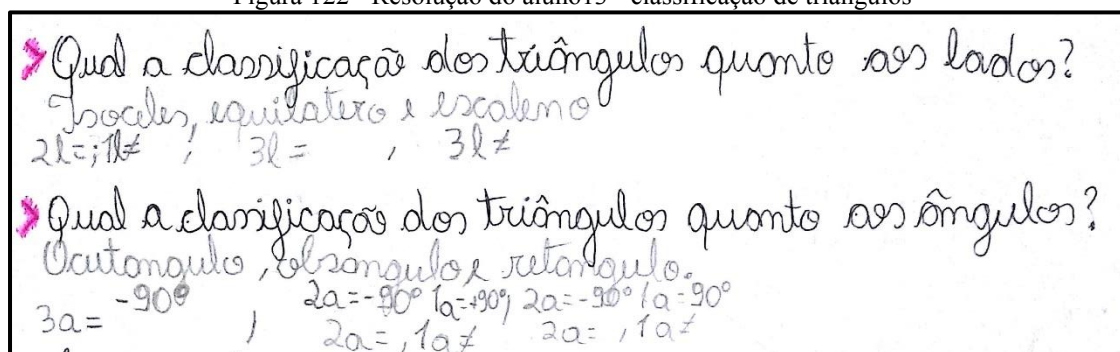 Figura 122 - Resolução do aluno15 - classificação de triângulos
Qual a classificação dos triângulos quanto aos lados?
Isoceles, equilatero e escaleno
2l=; 1l≠ , 3l= , 3l≠
Qual a clasificação dos triângulos quanto aos ângulos?
Ocutangulo, obsangulo e retangulo.
3a= -90° , 2a=-90° 1a=+90°, 2a=-90° 1a=90°
2a= , 1a≠ 2a= , 1a≠